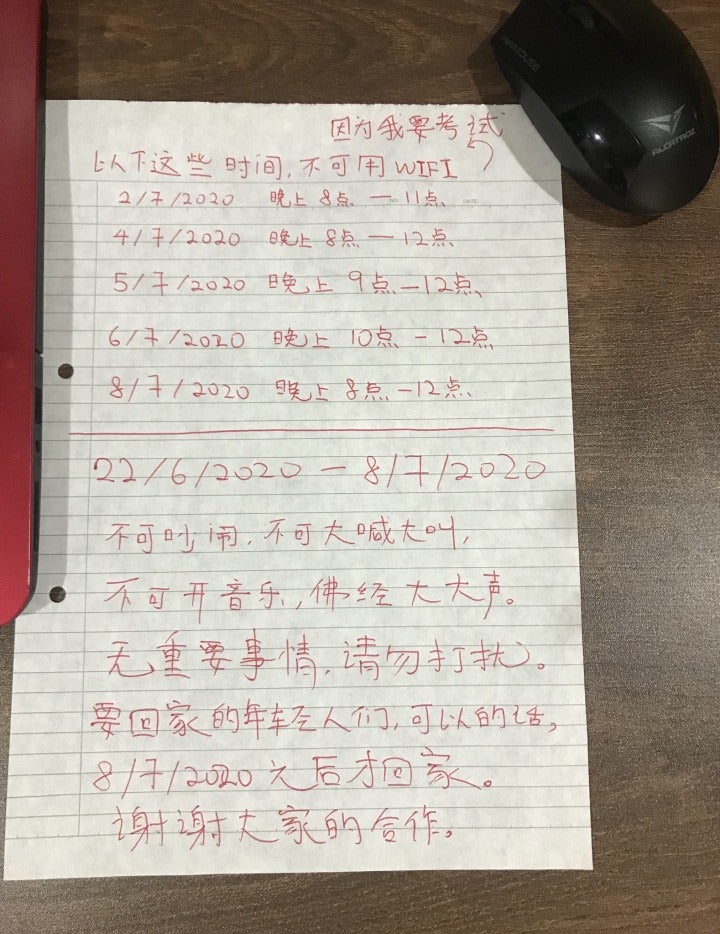 因为我要考试
以下这些时间,不可用WIFI
2/7/2020 晚上 8点 — 11点
4/7/2020 晚上 8点 — 12点
5/7/2020 晚上 9点 — 12点
6/7/2020 晚上 10点 - 12点
8/7/2020 晚上 8点 - 12点
22/6/2020 — 8/7/2020
不可吵闹,不可大喊大叫,
不可开音乐,佛经大大声。
无重要事情,请勿打扰。
要回家的年轻人们,可以的话,
8/7/2020 之后才回家。
谢谢大家的合作。
ALCATROZ